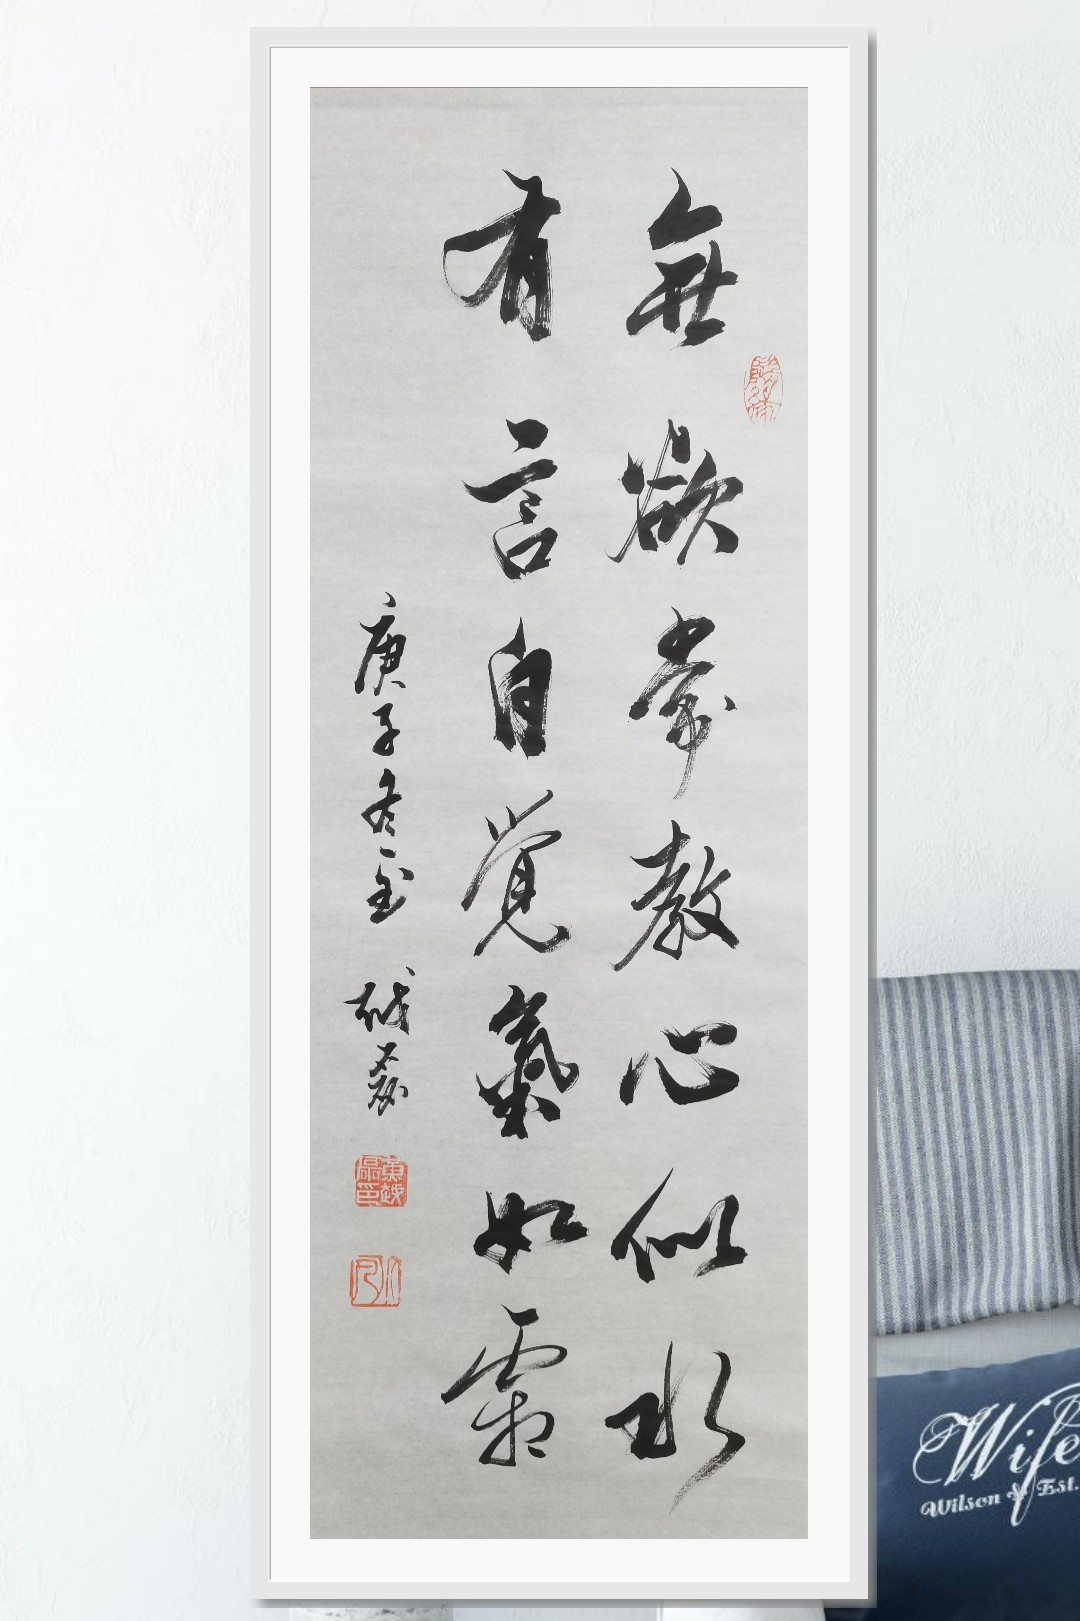 無欲常教心似水
有言自覺氣如霜
庚子冬至
Wife
Wilson Est.